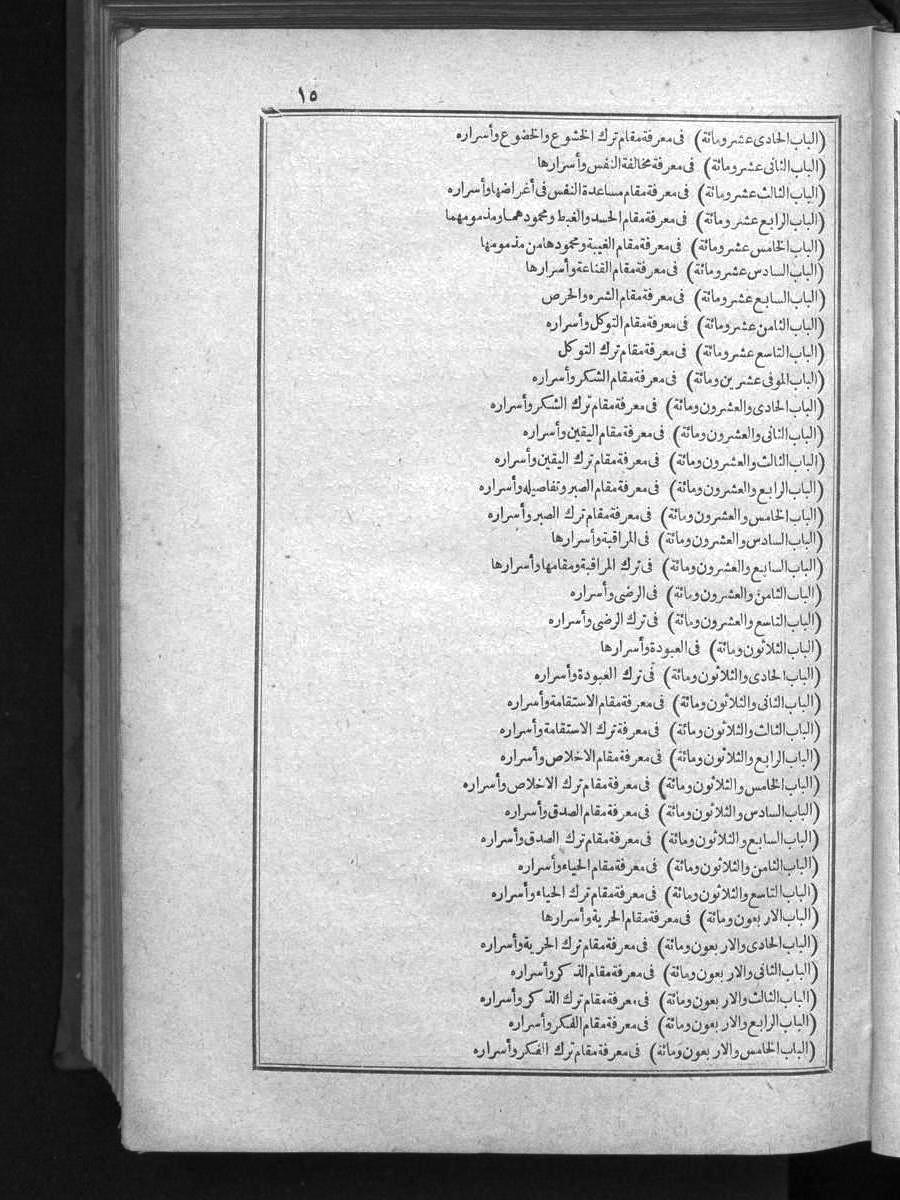 ١٥
(الباب الحادى عشر ومائة) فى معرفة مقام ترك الخشوع والخضوع وأسراره
(الباب الثانى عشر ومائة) فى معرفة مخالفة النفس وأسرارها
(الباب الثالث عشر ومائة) فى معرفة مقام مساعدة النفس فى أغراضها وأسراره
(الباب الرابع عشر ومائة) فى معرفة مقام الحسد والغبط ومحمودهما ومذمومهما
(الباب الخامس عشر ومائة) فى معرفة مقام الغيبة ومحمودها من مذمومها
(الباب السادس عشر ومائة) فى معرفة مقام القناعة وأسرارها
(الباب السابع عشر ومائة) فى معرفة مقام الشره والحرص
(الباب الثامن عشر ومائة) فى معرفة مقام التوكل وأسراره
(الباب التاسع عشر ومائة) فى معرفة مقام ترك التوكل
(الباب الموفى عشرين ومائة) فى معرفة مقام الشكر وأسراره
(الباب الحادى والعشرون ومائة) فى معرفة مقام ترك الشكر وأسراره
(الباب الثانى والعشرون ومائة) فى معرفة مقام اليقين وأسراره
(الباب الثالث والعشرون ومائة) فى معرفة مقام ترك اليقين وأسراره
(الباب الرابع والعشرون ومائة) فى معرفة مقام الصبر وتفاصيله وأسراره
(الباب الخامس والعشرون ومائة) فى معرفة مقام ترك الصبر وأسراره
(الباب السادس والعشرون ومائة) فى المراقبة وأسرارها
(الباب السابع والعشرون ومائة) فى ترك المراقبة ومقامها وأسرارها
(الباب الثامن والعشرون ومائة) فى الرضى وأسراره
(الباب التاسع والعشرون ومائة) فى ترك الرضى وأسراره
(الباب الثلاثون ومائة) فى العبودة وأسرارها
(الباب الحادى والثلاثون ومائة) فى ترك العبودة وأسراره
(الباب الثانى والثلاثون ومائة) فى معرفة مقام الاستقامة وأسراره
(الباب الثالث والثلاثون ومائة) فى معرفة ترك الاستقامة وأسراره
(الباب الرابع والثلاثون ومائة) فى معرفة مقام الاخلاص وأسراره
(الباب الخامس والثلاثون ومائة) فى معرفة مقام ترك الاخلاص وأسراره
(الباب السادس والثلاثون ومائة) فى معرفة مقام الصدق وأسراره
(الباب السابع والثلاثون ومائة) فى معرفة مقام ترك الصدق وأسراره
(الباب الثامن والثلاثون ومائة) فى معرفة مقام الحياء وأسراره
(الباب التاسع والثلاثون ومائة) فى معرفة مقام ترك الحياء وأسراره
(الباب الاربعون ومائة) فى معرفة مقام الحرية وأسرارها
(الباب الحادى والاربعون ومائة) فى معرفة مقام ترك الحرية وأسراره
(الباب الثانى والاربعون ومائة) فى معرفة مقام الذكر وأسراره
(الباب الثالث والاربعون ومائة) فى معرفة مقام ترك الذكر وأسراره
(الباب الرابع والاربعون ومائة) فى معرفة مقام الفكر وأسراره
(الباب الخامس والاربعون ومائة) فى معرفة مقام ترك الفكر وأسراره